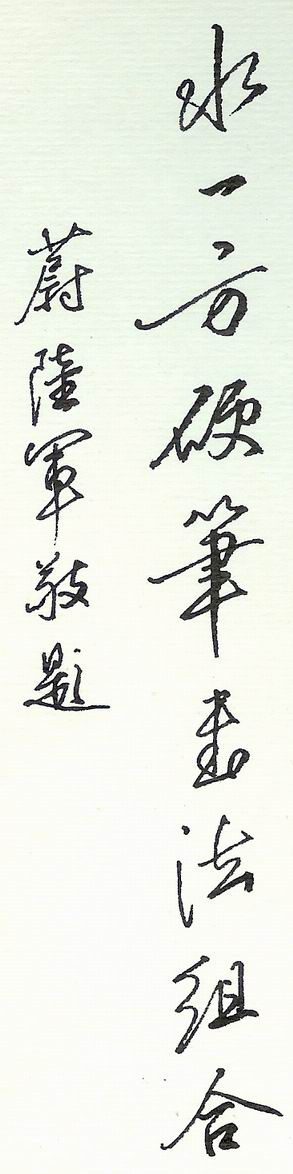 水一方硬筆書法組合
蔚陸軍敬題